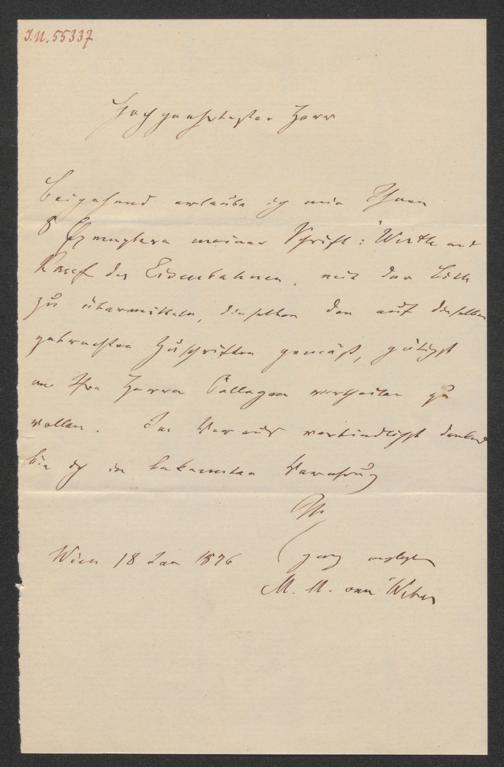 I.N. 55337
Hochgeehrtester Herr
Beigehend erlaube ich mir Ihnen
8 Exemplare meiner Schrift: "Werth und
Kauf der Eisenbahnen, mit der Bitte
zu übermitteln, dieselben den auf denselben
gebrachten Zuschriften gemäß, gütigst
an Ihre Herren Collegen vertheilen zu
wollen. Im Voraus verbindlichst dankend
bin ich in bekannter Verehrung
Ihr
Wien 18 Jan 1876 ganz ergebener
M. M. von Weber